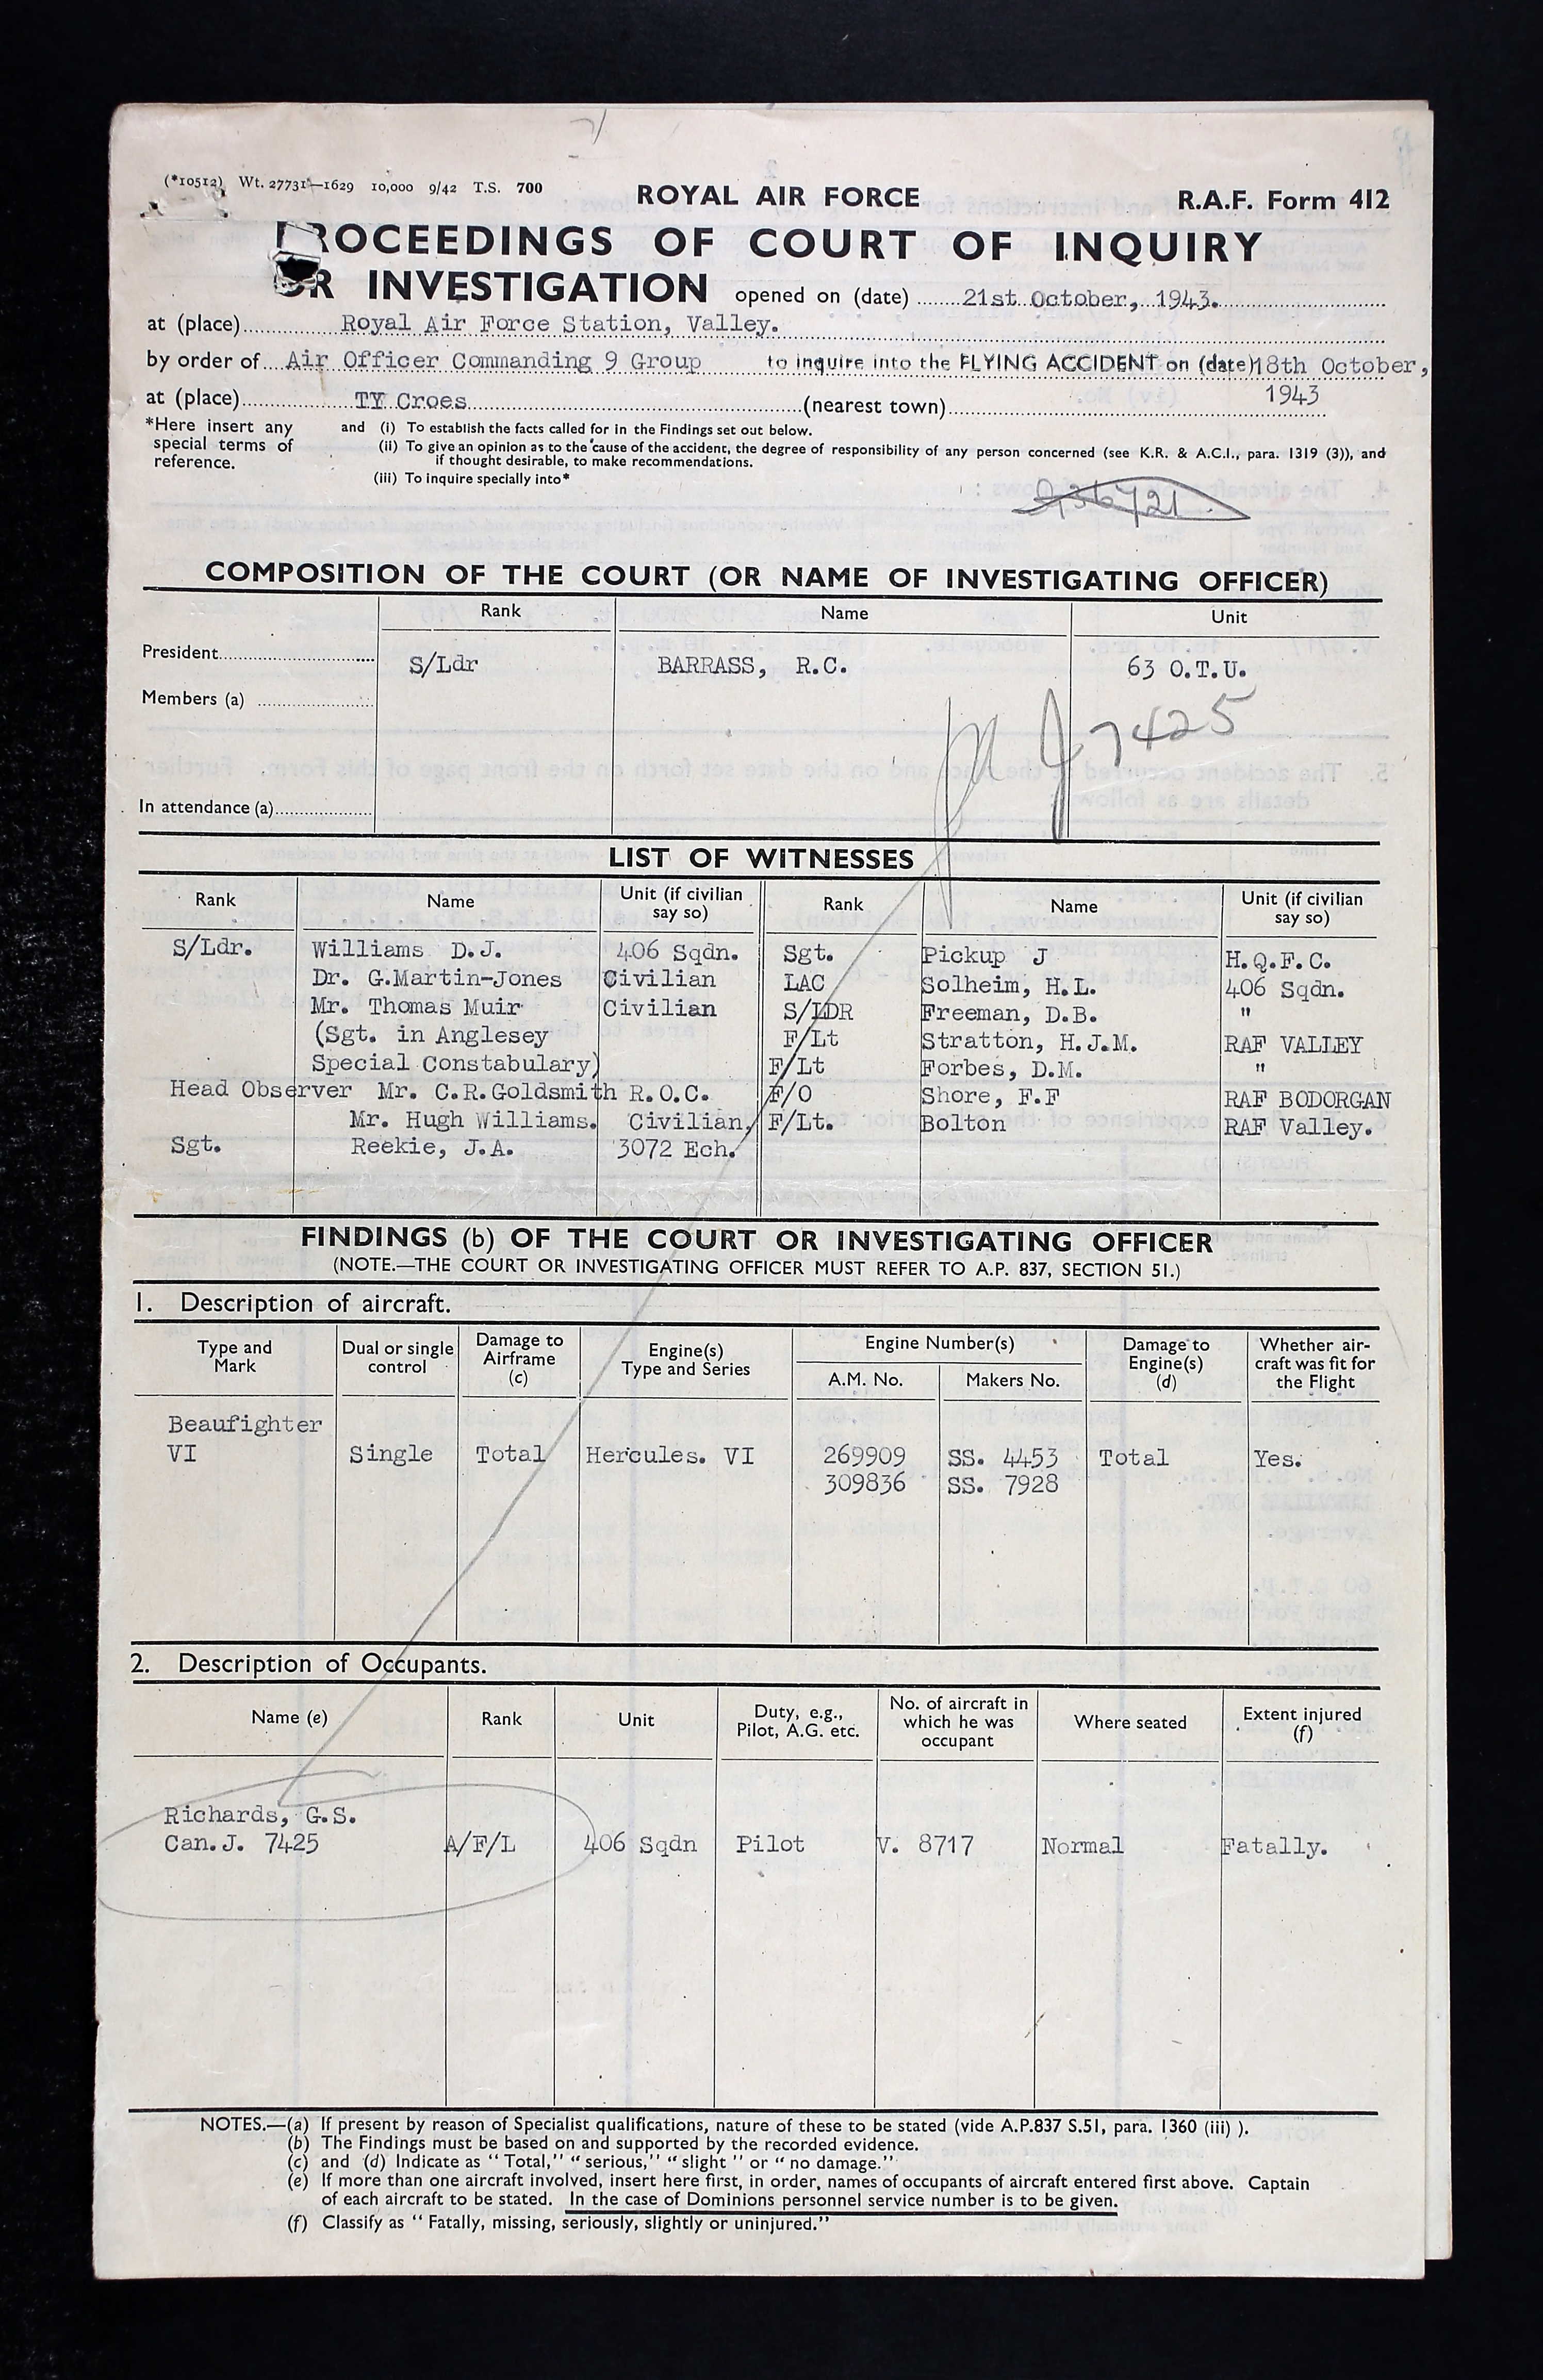 (*10512) Wt. 27731—1629 10,000 9/42 T.S. 700
ROYAL AIR FORCE
R.A.F. Form 412
PROCEEDINGS OF COURT OF INQUIRY
OR INVESTIGATION opened on (date) 21st October, 1943.
at (place) Royal Air Force Station, Valley.
by order of Air Officer Commanding 9 Group to inquire into the FLYING ACCIDENT on (date) 18th October,
1943
at (place) TY Croes (nearest town)
*Here insert any special terms of reference.
and (i) To establish the facts called for in the Findings set out below.
(ii) To give an opinion as to the cause of the accident, the degree of responsibility of any person concerned (see K.R. & A.C.I., para. 1319 (3)), and
if thought desirable, to make recommendations.
(iii) To inquire specially into*
COMPOSITION OF THE COURT (OR NAME OF INVESTIGATING OFFICER)
Rank Name Unit
President S/Ldr BARRASS, R.C. 63 O.T.U.
Members (a)
J 7425
In attendance (a)
LIST OF WITNESSES
Rank Name Unit (if civilian say so) Rank Name Unit (if civilian say so)
S/Ldr. Williams D.J. 406 Sqdn. Sgt. Pickup J H.Q.F.C.
Dr. G.Martin-Jones Civilian LAC Solheim, H.L. 406 Sqdn.
Mr. Thomas Muir Civilian S/LDR Freeman, D.B. "
(Sgt. in Anglesey F/Lt Stratton, H.J.M. RAF VALLEY
Special Constabulary) F/Lt Forbes, D.M. "
Head Observer Mr. C.R.Goldsmith R.O.C. F/O Shore, F.F RAF BODORGAN
Mr. Hugh Williams. Civilian, F/Lt. Bolton RAF Valley.
Sgt. Reekie, J.A. 3072 Ech.
FINDINGS (b) OF THE COURT OR INVESTIGATING OFFICER
(NOTE.—THE COURT OR INVESTIGATING OFFICER MUST REFER TO A.P. 837, SECTION 51.)
1. Description of aircraft.
Type and Mark Dual or single control Damage to Airframe (c) Engine(s) Type and Series Engine Number(s) Damage to Engine(s) (d) Whether air-craft was fit for the Flight
A.M. No. Makers No.
Beaufighter
VI Single Total Hercules. VI 269909 SS. 4453 Total Yes.
309836 SS. 7928
2. Description of Occupants.
Name (e) Rank Unit Duty, e.g., Pilot, A.G. etc. No. of aircraft in which he was occupant Where seated Extent injured (f)
Richards, G.S.
Can.J. 7425 A/F/L 406 Sqdn Pilot V. 8717 Normal Fatally.
NOTES.—(a) If present by reason of Specialist qualifications, nature of these to be stated (vide A.P.837 S.51, para. 1360 (iii) ).
(b) The Findings must be based on and supported by the recorded evidence.
(c) and (d) Indicate as "Total," "serious," "slight" or "no damage."
(e) If more than one aircraft involved, insert here first, in order, names of occupants of aircraft entered first above. Captain
of each aircraft to be stated. In the case of Dominions personnel service number is to be given.
(f) Classify as "Fatally, missing, seriously, slightly or uninjured."